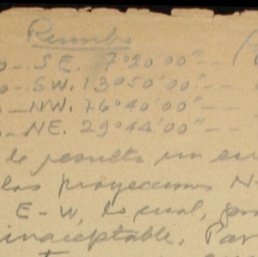 Rumbo
o — S E. 7°20'00" — (
o — SW. 13°50'00" —
o — NW. 76°40'00" —
o — NE. 29°44'00" —
le resulta un
las proyecciones N-
E-W, lo cual,
inaceptable, Par